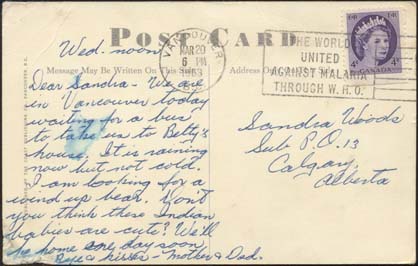 POST CARD
VANCOUVER
MAR 20
6 PM
THE WORLD
UNITED
AGAINST MALARIA
THROUGH W.H.O.
CANADA
4¢ 4¢
Message May Be Written On This Side
Address Only
Wed. noon.
Dear Sandra - We are
in Vancouver today
waiting for a bus
to take us to Betty's
house. It is raining
now but not cold.
I am looking for a
wind up bear. Don't
you think these Indian
babies are cute? We'll
be home one day soon
& kisses - Mother & Dad.
Sandra Woods
Sub P.O. 13
Calgary,
Alberta